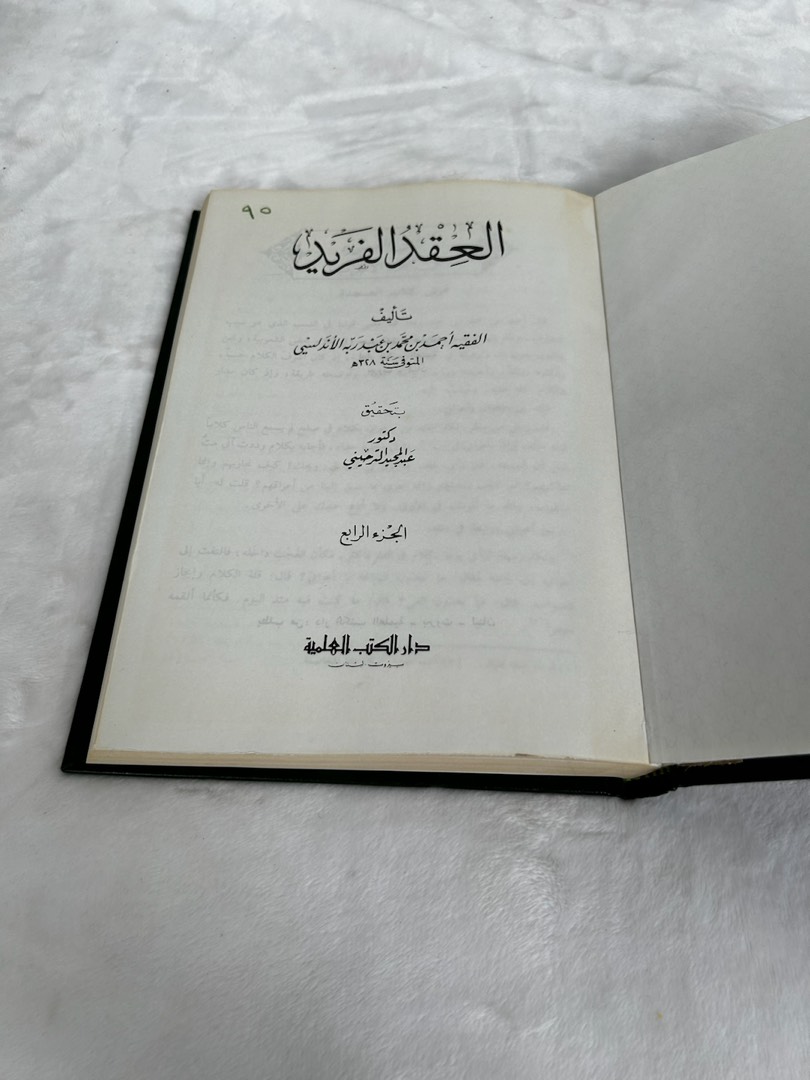 ٩٥
العِقْدُ الفَريد
تأليف
الفقيه أحمد بن محمد بن عبد ربه الأندلسي
المتوفى سنة ٣٢٨ھ
بتحقيق
دكتور
عبد المجيد الترحيني
الجزء الرابع
دار الكتب العلمية
بيروت لبنان